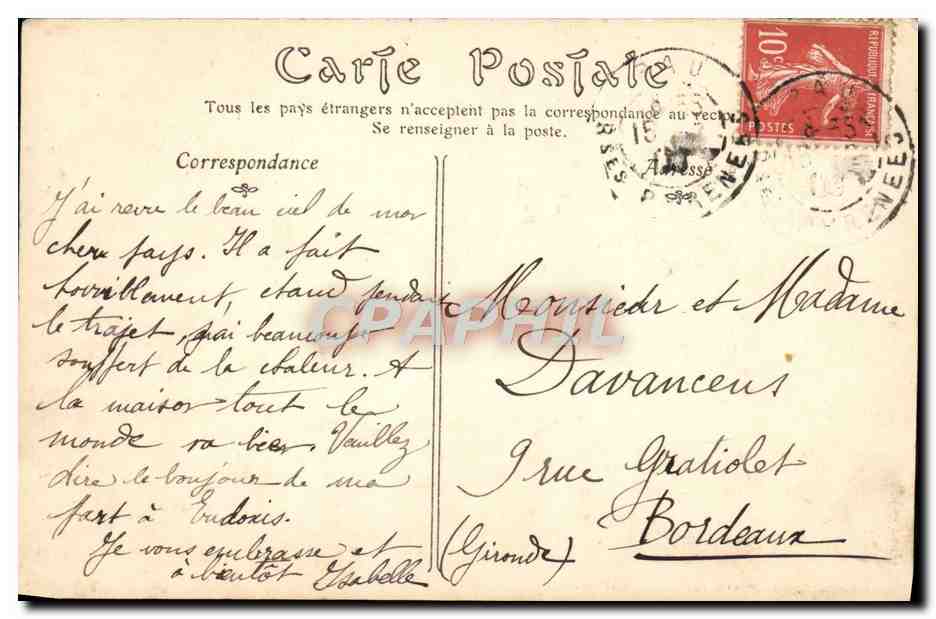 Carte Postale
Tous les pays étrangers n'acceptent pas la correspondance au recto
Se renseigner à la poste.
Correspondance
J'ai revu le beau ciel de mon
cher pays. Il a fait
horriblement, chaud pendant
le trajet, j'ai beaucoup
souffert de la chaleur. A
la maison tout le
monde va bien. Veuillez
dire le bonjour de ma
part à Eudoxis.
Je vous embrasse et
à bientôt Isabelle
Adresse
Monsieur et Madame
Davancens
9 rue Gratiolet
Bordeaux
(Gironde)
REPUBLIQUE FRANÇAISE
10c
POSTES
PAU
PAU
CPAPHIL